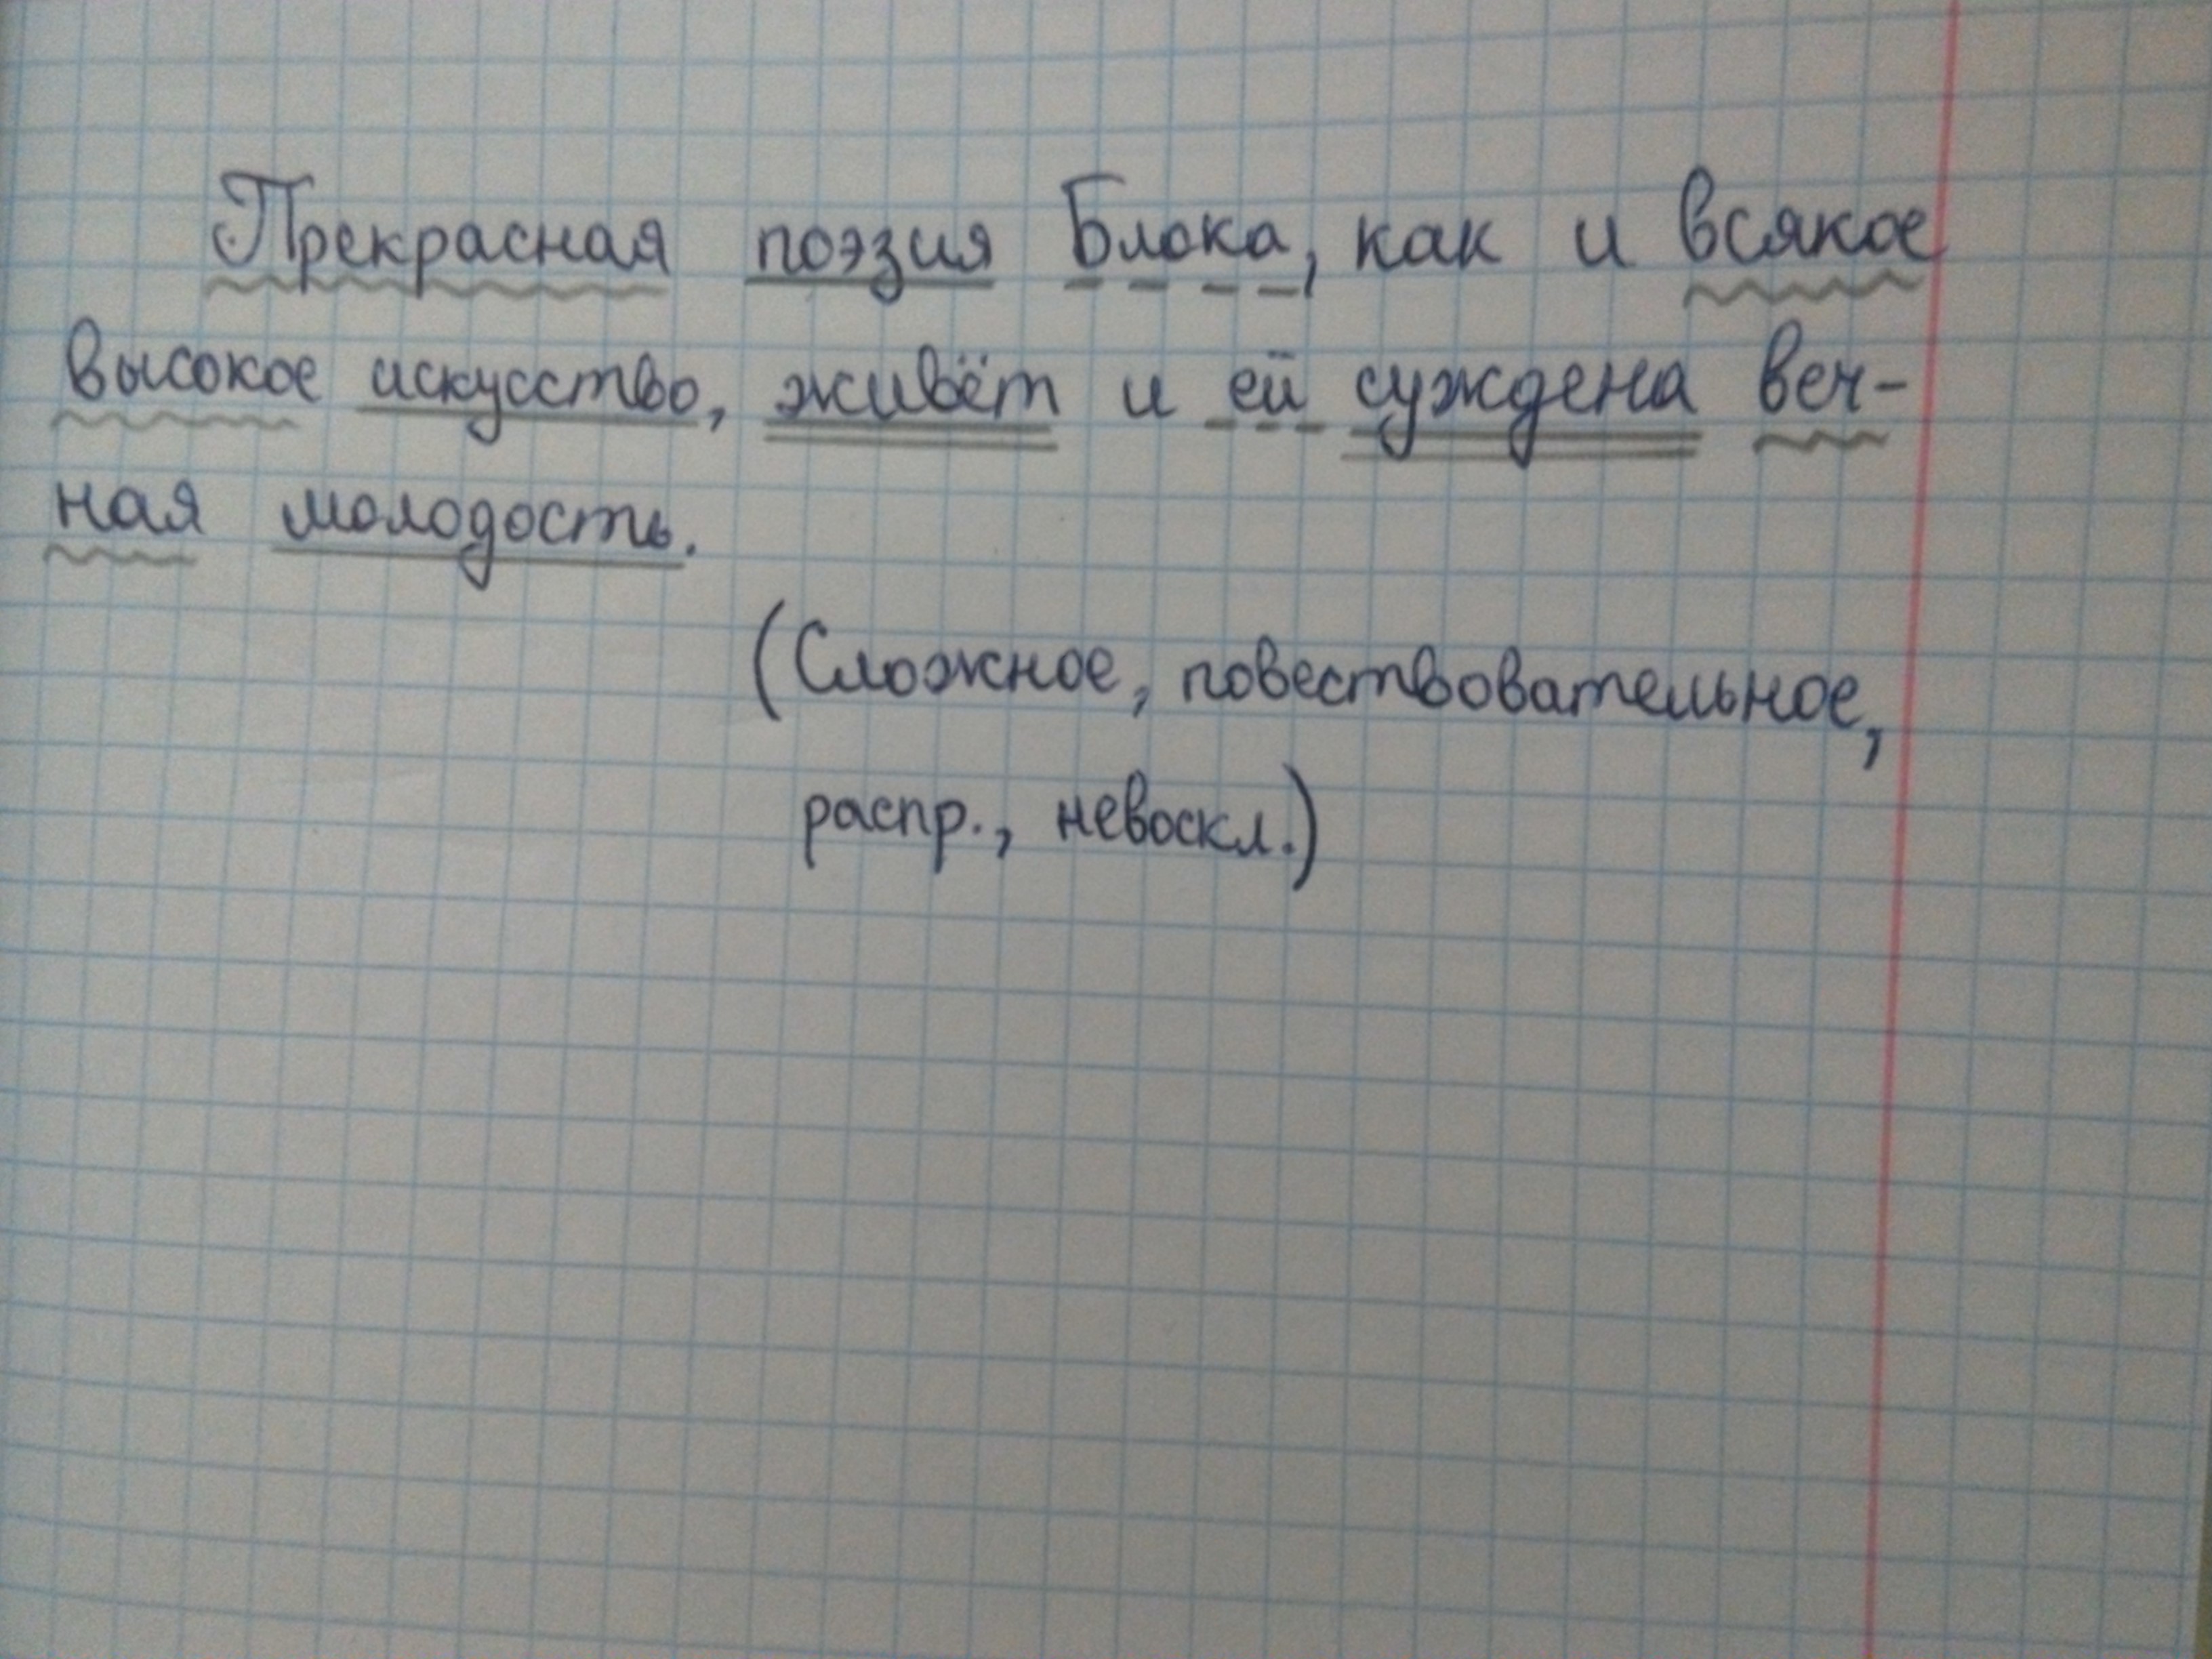 Прекрасная поэзия Блока, как и всякое
высокое искусство, живёт и ей суждена веч-
ная молодость.
(Сложное, повествовательное,
распр., невоскл.)